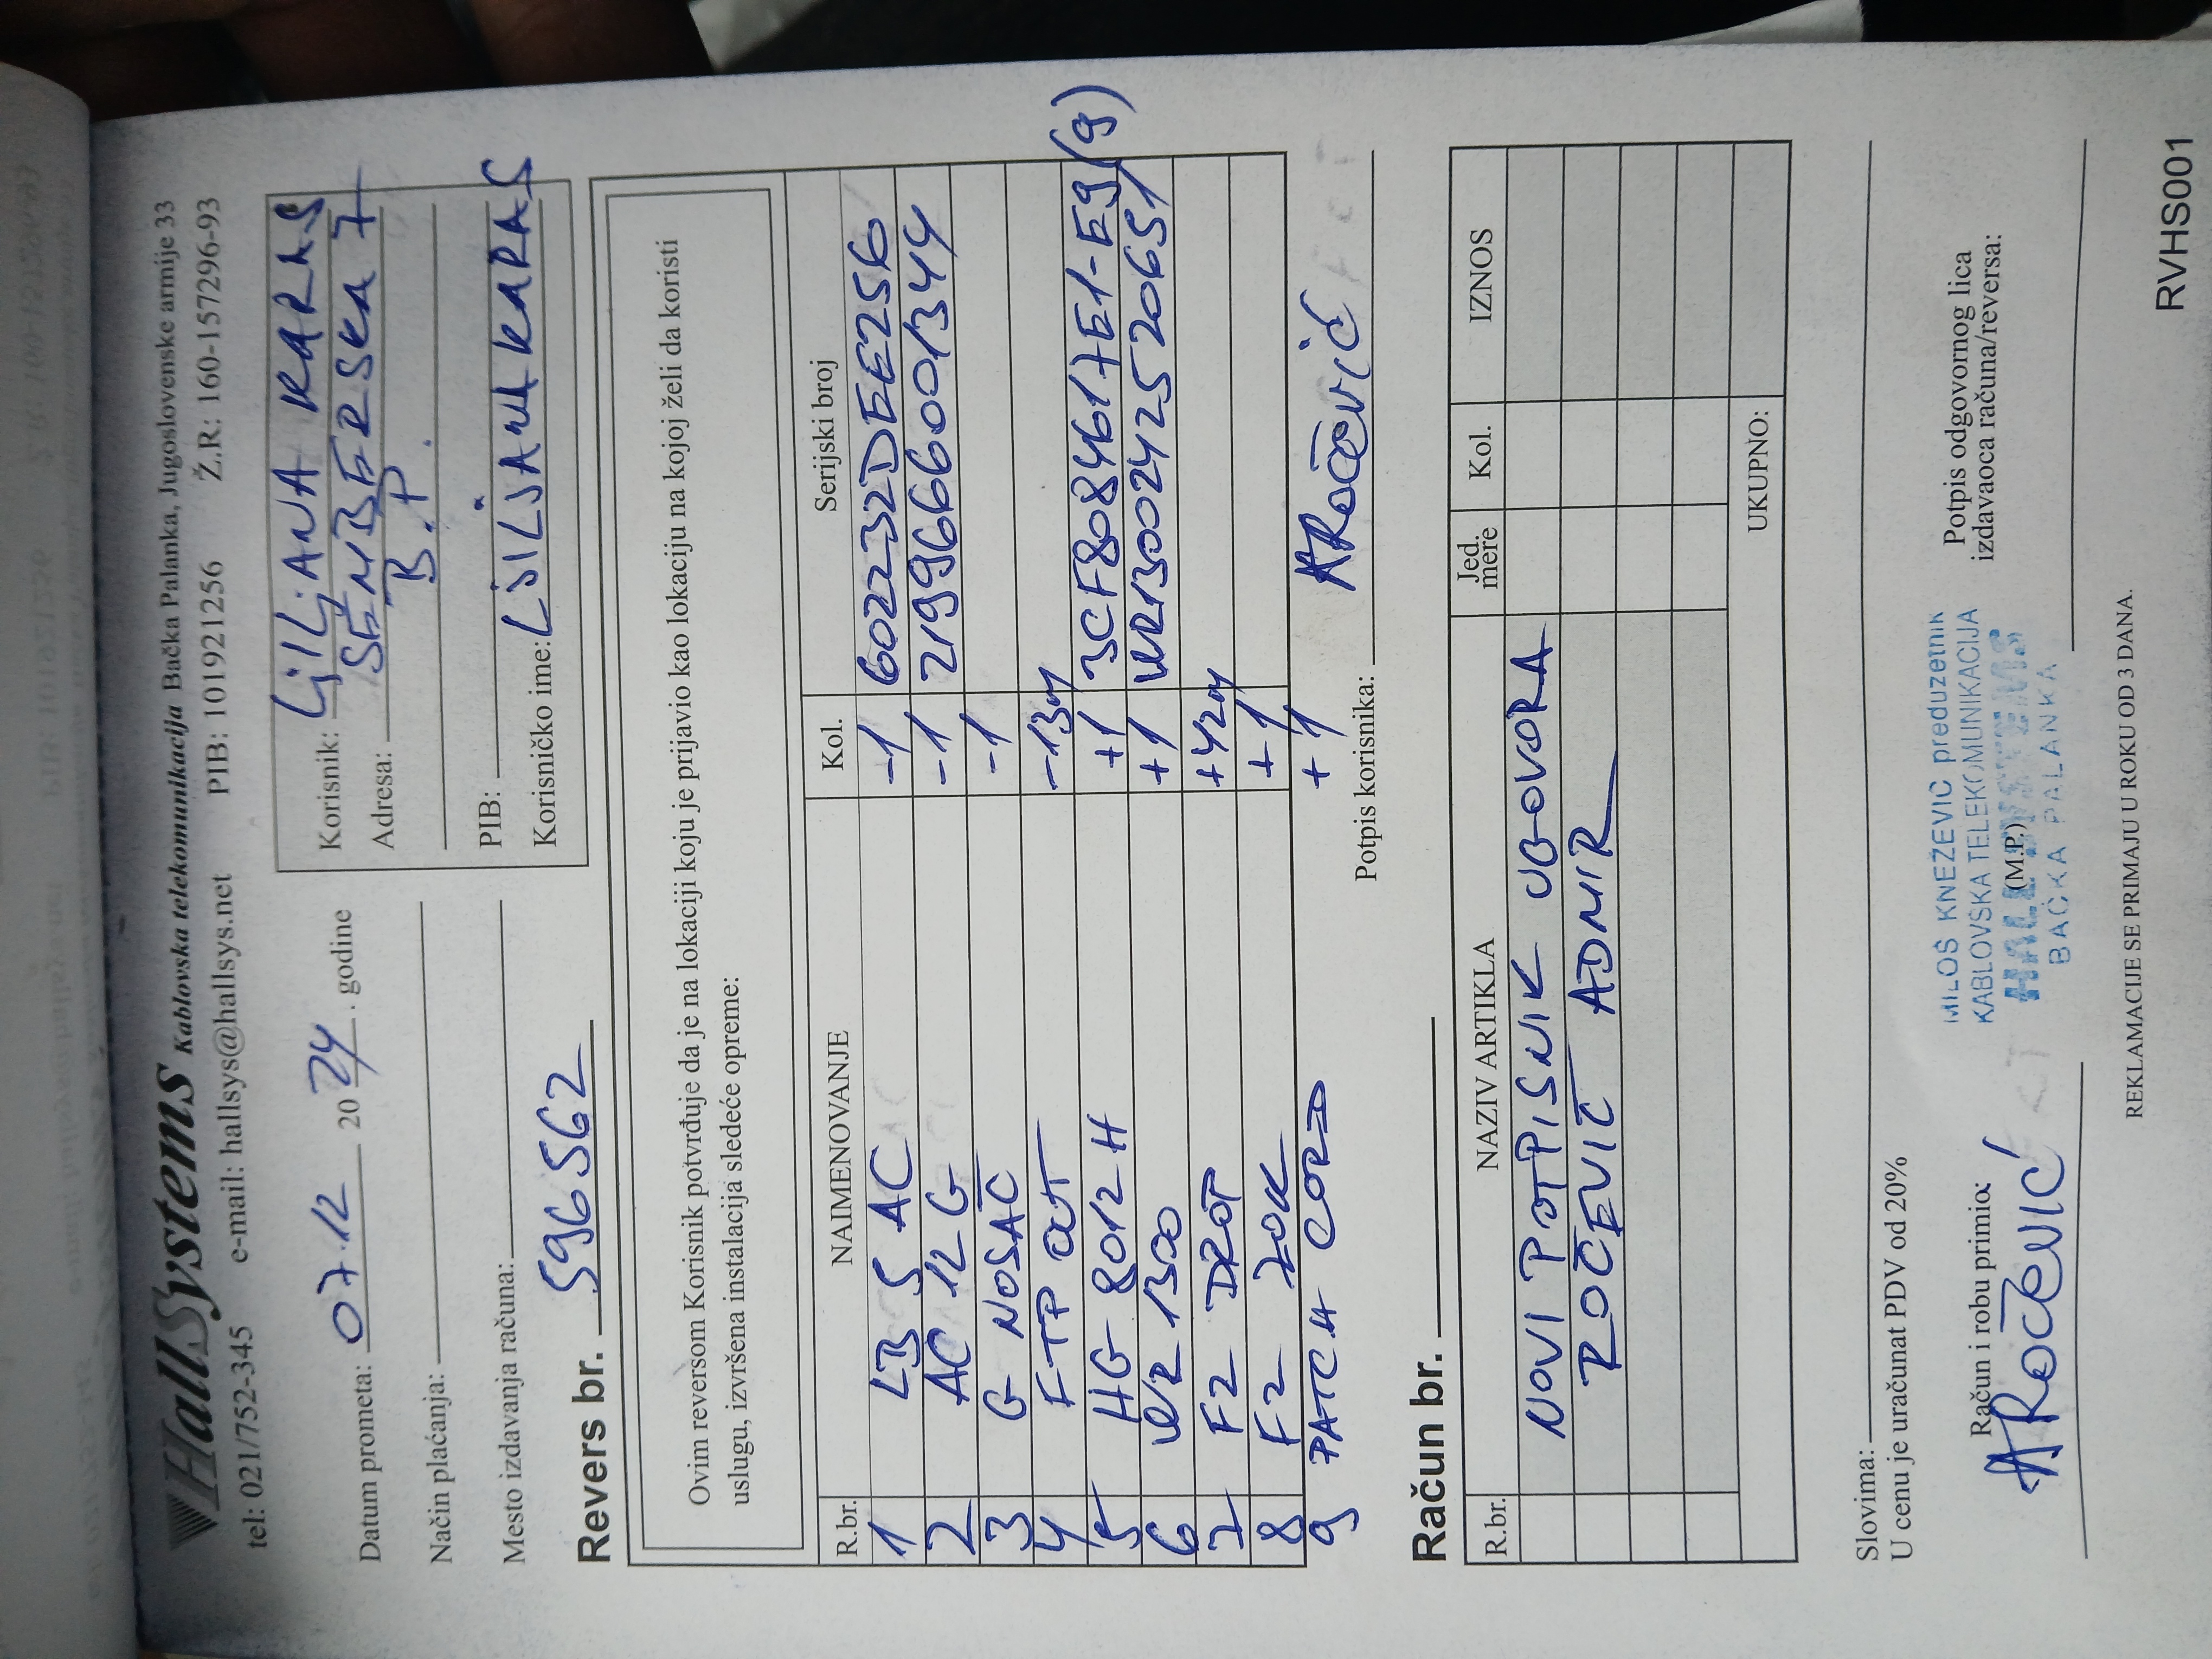 HallSystems Kablovska telekomunikacija Bačka Palanka, Jugoslovenske armije 33
tel: 021/752-345 e-mail: hallsys@hallsys.net PIB: 101921256 Ž.R: 160-157296-93
Datum prometa: 07.12 2024. godine
Način plaćanja:
Mesto izdavanja računa:
Korisnik: LjiLjANA KARAS
Adresa: SEMBERSKA 7
B.P.
PIB:
Korisničko ime: LJILJANA KARAS
Revers br. 596562
Ovim reversom Korisnik potvrđuje da je na lokaciji koju je prijavio kao lokaciju na kojoj želi da koristi
uslugu, izvršena instalacija sledeće opreme:
R.br. NAIMENOVANJE Kol. Serijski broj
1 LB 5 AC -1 602232DEE256
2 AC 12 G -1 2199666001344
3 G NOSAČ -1
4 FTP OUT -13m
5 HG 8012 H +1 3CF8084617E1-E9(9)
6 WR 1300 +1 WR13002425520651
7 F2 DROP +42m
8 F2 ZOK +1
9 PATCH CORD +1
Potpis korisnika: ARočević
Račun br.
R.br. NAZIV ARTIKLA Jed. mere Kol. IZNOS
NOVI POTPISNIK UGOVORA
ROČEVIĆ ADMIR
UKUPNO:
Slovima:
U cenu je uračunat PDV od 20%
Račun i robu primio:
ARočević
MILOŠ KNEŽEVIĆ preduzetnik
KABLOVSKA TELEKOMUNIKACIJA
HALL SYSTEMS
(M.P.)
BAČKA PALANKA
Potpis odgovornog lica
izdavaoca računa/reversa:
REKLAMACIJE SE PRIMAJU U ROKU OD 3 DANA.
RVHS001